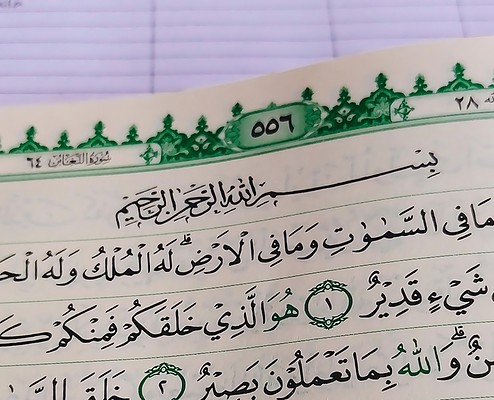 ٢٨ ٥٥٦ سورة التغابن ٦٤
بِسْمِ اللهِ الرَّحْمٰنِ الرَّحِيْمِ
مَا فِى السَّمٰوٰتِ وَمَا فِى الْاَرْضِۗ لَهُ الْمُلْكُ وَلَهُ الْحَ
شَيْءٍ قَدِيْرٌ ١ هُوَ الَّذِيْ خَلَقَكُمْ فَمِنْكُمْ كَ
نٌۗ وَاللهُ بِمَا تَعْمَلُوْنَ بَصِيْرٌ ٢ خَلَقَ السَّ